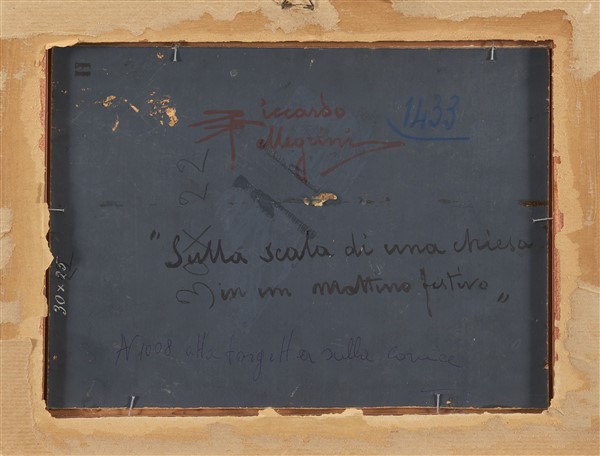 Riccardo 1433
Pellegrini
30 x 22
"Sulla scala di una chiesa
in un mattino festivo"
30 x 25
N 1028 alla targhetta sulla cornice